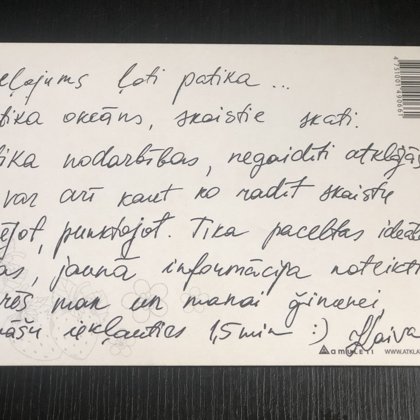 ceļojums ļoti patika ...
tika okeāns, skaistie skati.
tika nodarbības, negaidīti atklājās
var arī kaut ko radīt skaistu
ējot, punktojot. Tika paceltas
as, jaunā informācija noteikti
ēs man un manai ģimenei
iekļauties 1,5 min :)
AMULETI WWW.ATKLA